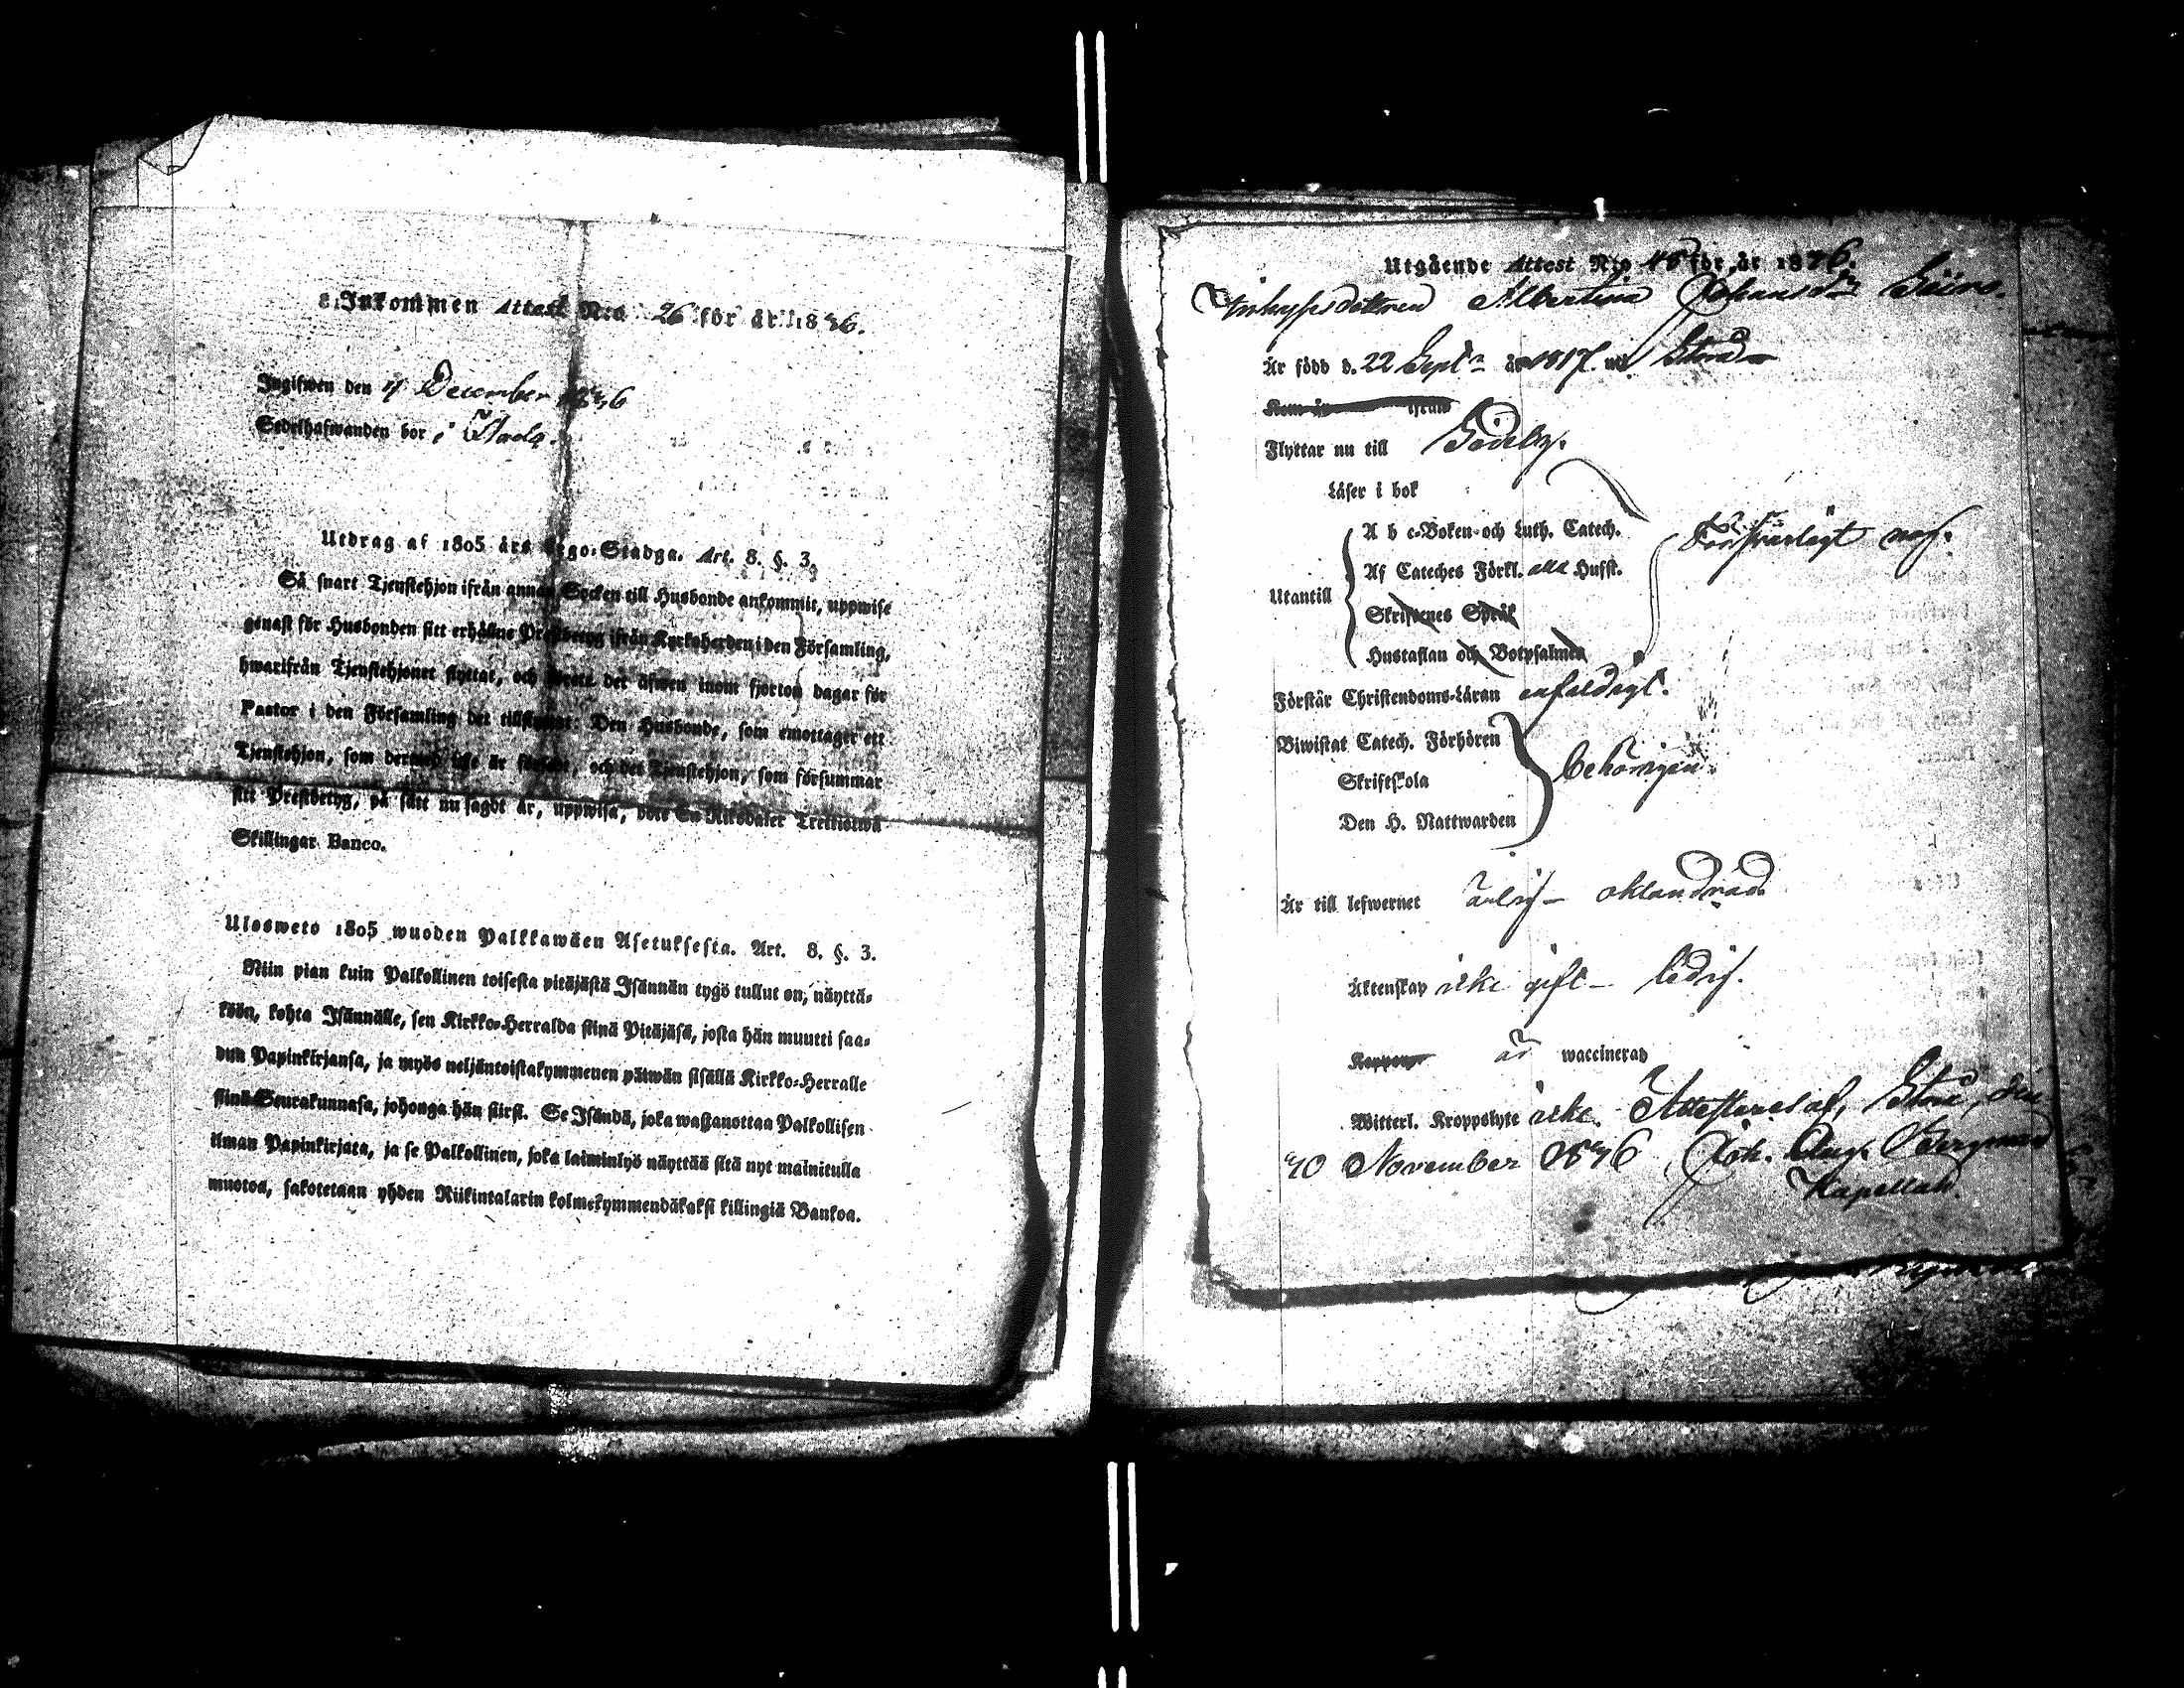 Inkommen Attest N:o 26 för år 1846.
Ingifwen den 4 December 1846
Sedelhafwanden bor i
Utdrag af 1805 års Lego-Stadga. Art. 8. §. 3.
Så snart Tjenstehjon ifrån annan Socken till Husbonde ankommit, uppwise
genast för Husbonden sitt erhållne Prestbetyg ifrån Kyrkoherden i den Församling,
hwarifrån Tjenstehjonet flyttat, och det äfwen inom fjorton dagar för
Pastor i den Församling det tillflyttat: Den Husbonde, som emottager ett
Tjenstehjon, som dermed icke är försedt, och det Tjenstehjon, som försummar
sitt Prestbetyg, på sätt nu sagdt är, uppwisa, böte En Riksdaler Trettiotwå
Skillingar Banco.
Ulosweto 1805 wuoden Palkkawäen Asetuksesta. Art. 8. §. 3.
Niin pian kuin Palkollinen toisesta pitäjästä Isännän tygö tullut on, näyttä-
köön, kohta Isännälle, sen Kirkko-Herralda siinä Pitäjäsä, josta hän muutti saa-
dun Papinkirjansa, ja myös neljäntoistakymmenen päiwän sisällä Kirkko-Herralle
siinä Seurakunnasa, johonga hän siirsi. Se Isändä, joka wastanottaa Palkollisen
ilman Papinkirjata, ja se Palkollinen, joka laiminlyö näyttää sitä nyt mainitulla
muotoa, sakotetaan yhden Riikintalarin kolmekymmendäkaksi killingiä Bankoa.
Utgående Attest N:o 45 för år 1846.
Albertina Johansdr
Är född d. 22 Sept. år 1817 i Strand
Kom år ifrån
Flyttar nu till Gödeby.
Läser i bok
A b c-Boken och Luth. Catech.
Af Cateches Förkl. alla Hufst. Förswarligt
Utantill
Skriftenes Språk
Hustaflan och Botpsalmen
Förstår Christendoms-Läran enfaldigt.
Biwistat Catech. Förhören
Skriftskola behörigen
Den H. Nattwarden
Är till lefwernet ärlig - oklandrad
Äktenskap icke gift - ledig.
Koppor är waccinerad
Witterl. Kroppslyte icke. Attesteras af, Strand, den
30 November 1846 Joh. Aug. Bergman
Kapellan.